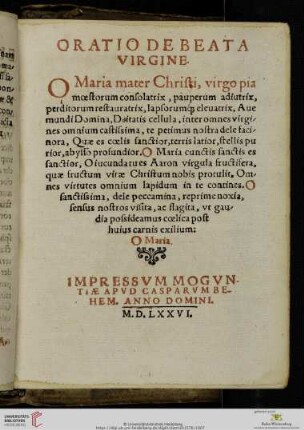 ORATIO DE BEATA
VIRGINE.
O Maria mater Christi, virgo pia
mœstorum consolatrix, pauperum adiutrix,
perditorum restauratrix, lapsorumq; eleuatrix, Aue
mundi Domina, Deitatis cellula, inter omnes virgi-
nes omnium castissima, te petimus nostra dele faci-
nora, Quæ es cœlis sanctior, terris latior, stellis pu
rior, abysso profundior. O Maria cunctis sanctis es
sanctior, O iucunda tu es Aaron virgula fructifera,
quæ fructum vitæ Christum nobis protulit. Om-
nes virtutes omnium lapidum in te contines. O
sanctissima, dele peccamina, reprime noxia,
sensus nostros visita, ac flagita, vt gau-
dia possideamus cœlica post
huius carnis exilium:
O Maria.
IMPRESSVM MOGVN-
TIÆ APVD CASPARVM BE-
HEM. ANNO DOMINI.
M.D.LXXVI.
UNIVERSITÄTS-
BIBLIOTHEK
HEIDELBERG
© Universitätsbibliothek Heidelberg
Baden-Württemberg